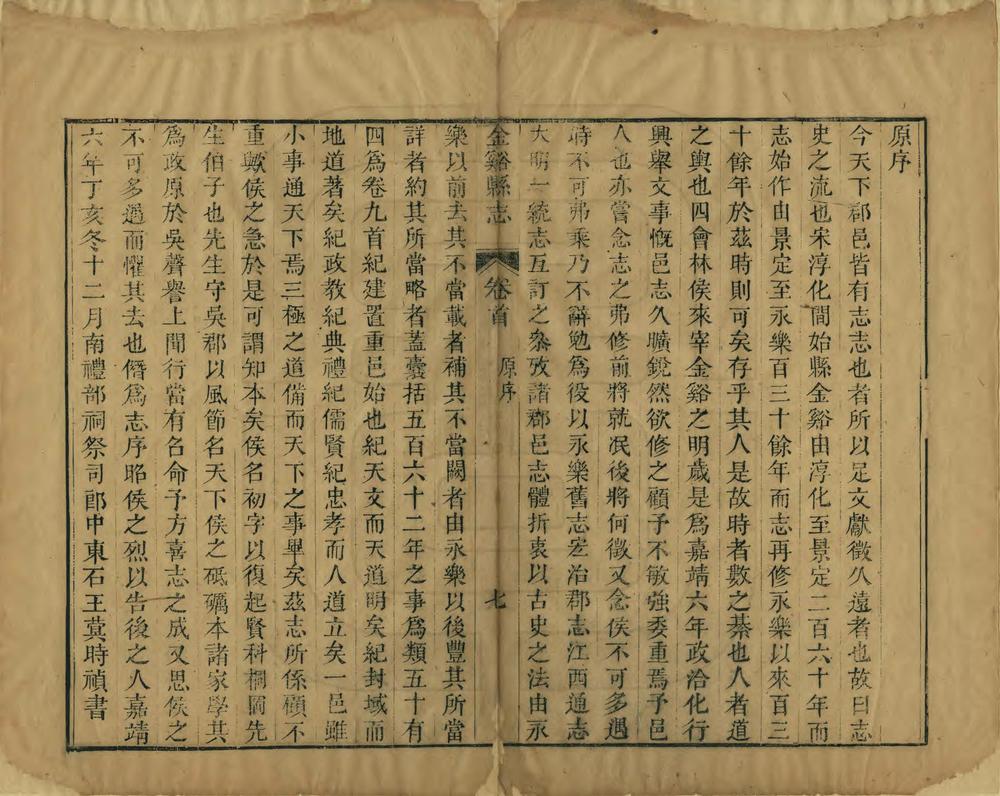 原序
今天下郡邑皆有志志也者所以足文獻徵久遠者也故曰志
史之流也宋淳化間始縣金谿由淳化至景定二百六十年而
志始作由景定至永樂百三十餘年而志再修永樂以來百三
十餘年於茲時則可矣存乎其人是故時者數之綦也人者道
之輿也四會林侯來宰金谿之明歲是爲嘉靖六年政洽化行
興舉文事慨邑志久曠銳然欲修之顧予不敏強委重焉予邑
人也亦嘗念志之弗修前將就泯後將何徵又念侯不可多遇
時不可弗乘乃不辭勉爲役以永樂舊志宏治郡志江西通志
大明一統志互訂之叅攷諸郡邑志體折衷以古史之法由永
金谿縣志 卷首 原序 七
樂以前去其不當載者補其不當闕者由永樂以後豐其所當
詳者約其所當略者蓋囊括五百六十二年之事爲類五十有
四爲卷九首紀建置重邑始也紀天文而天道明矣紀封域而
地道著矣紀政教紀典禮紀儒賢紀忠孝而人道立矣一邑雖
小事通天下焉三極之道備而天下之事畢矣茲志所係顧不
重歟侯之急於是可謂知本矣侯名初字以復起賢科桐圃先
生伯子也先生守吳郡以風節名天下侯之砥礪本諸家學其
爲政原於吳聲譽上聞行當有名命予方喜志之成又思侯之
不可多遇而懼其去也僭爲志序昭侯之烈以告後之人嘉靖
六年丁亥冬十二月南禮部祠祭司郎中東石王蓂時禎書